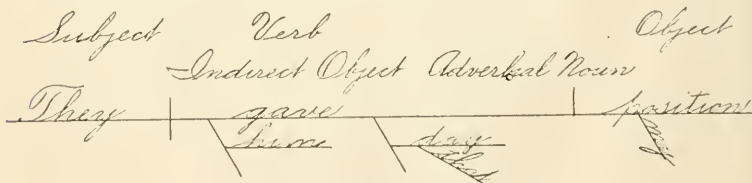 Subject Verb Object
Indirect Object Adverbial Noun
They gave position
him day my
that